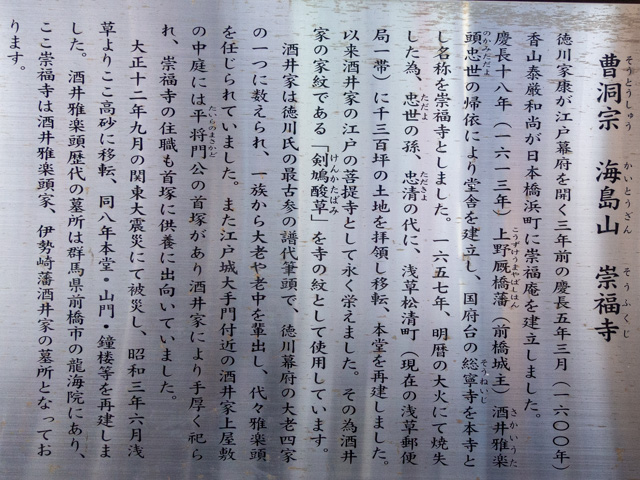 曹洞宗 海島山 崇福寺
そうとうしゅう かいとうざん そうふくじ
徳川家康が江戸幕府を開く三年前の慶長五年三月（一六〇〇年）
香山泰厳和尚が日本橋浜町に崇福庵を建立しました。
慶長十八年（一六一三年）上野厩橋藩（前橋城主）酒井雅楽
こうずけうまやばしはん さかいうた
頭忠世の帰依により堂舎を建立し、国府台の総寧寺を本寺と
のかみただよ そうねいじ
し名称を崇福寺としました。一六五七年、明暦の大火にて焼失
した為、忠世の孫、忠清の代に、浅草松清町（現在の浅草郵便
ただよ ただきよ
局一帯）に千三百坪の土地を拝領し移転、本堂を再建しました。
以来酒井家の江戸の菩提寺として永く栄えました。その為酒井
家の家紋である「剣鳩酸草」を寺の紋として使用しています。
けんかたばみ
酒井家は徳川氏の最古参の譜代筆頭で、徳川幕府の大老四家
の一つに数えられ、一族から大老や老中を輩出し、代々雅楽頭
を任じられていました。また江戸城大手門付近の酒井家上屋敷
の中庭には平将門公の首塚があり酒井家により手厚く祀ら
たいらのまさかど
れ、崇福寺の住職も首塚に供養に出向いていました。
大正十二年九月の関東大震災にて被災し、昭和三年六月浅
草よりここ高砂に移転、同八年本堂・山門・鐘楼等を再建しま
した。酒井雅楽頭歴代の墓所は群馬県前橋市の龍海院にあり、
ここ崇福寺は酒井雅楽頭家、伊勢崎藩酒井家の墓所となってお
ります。